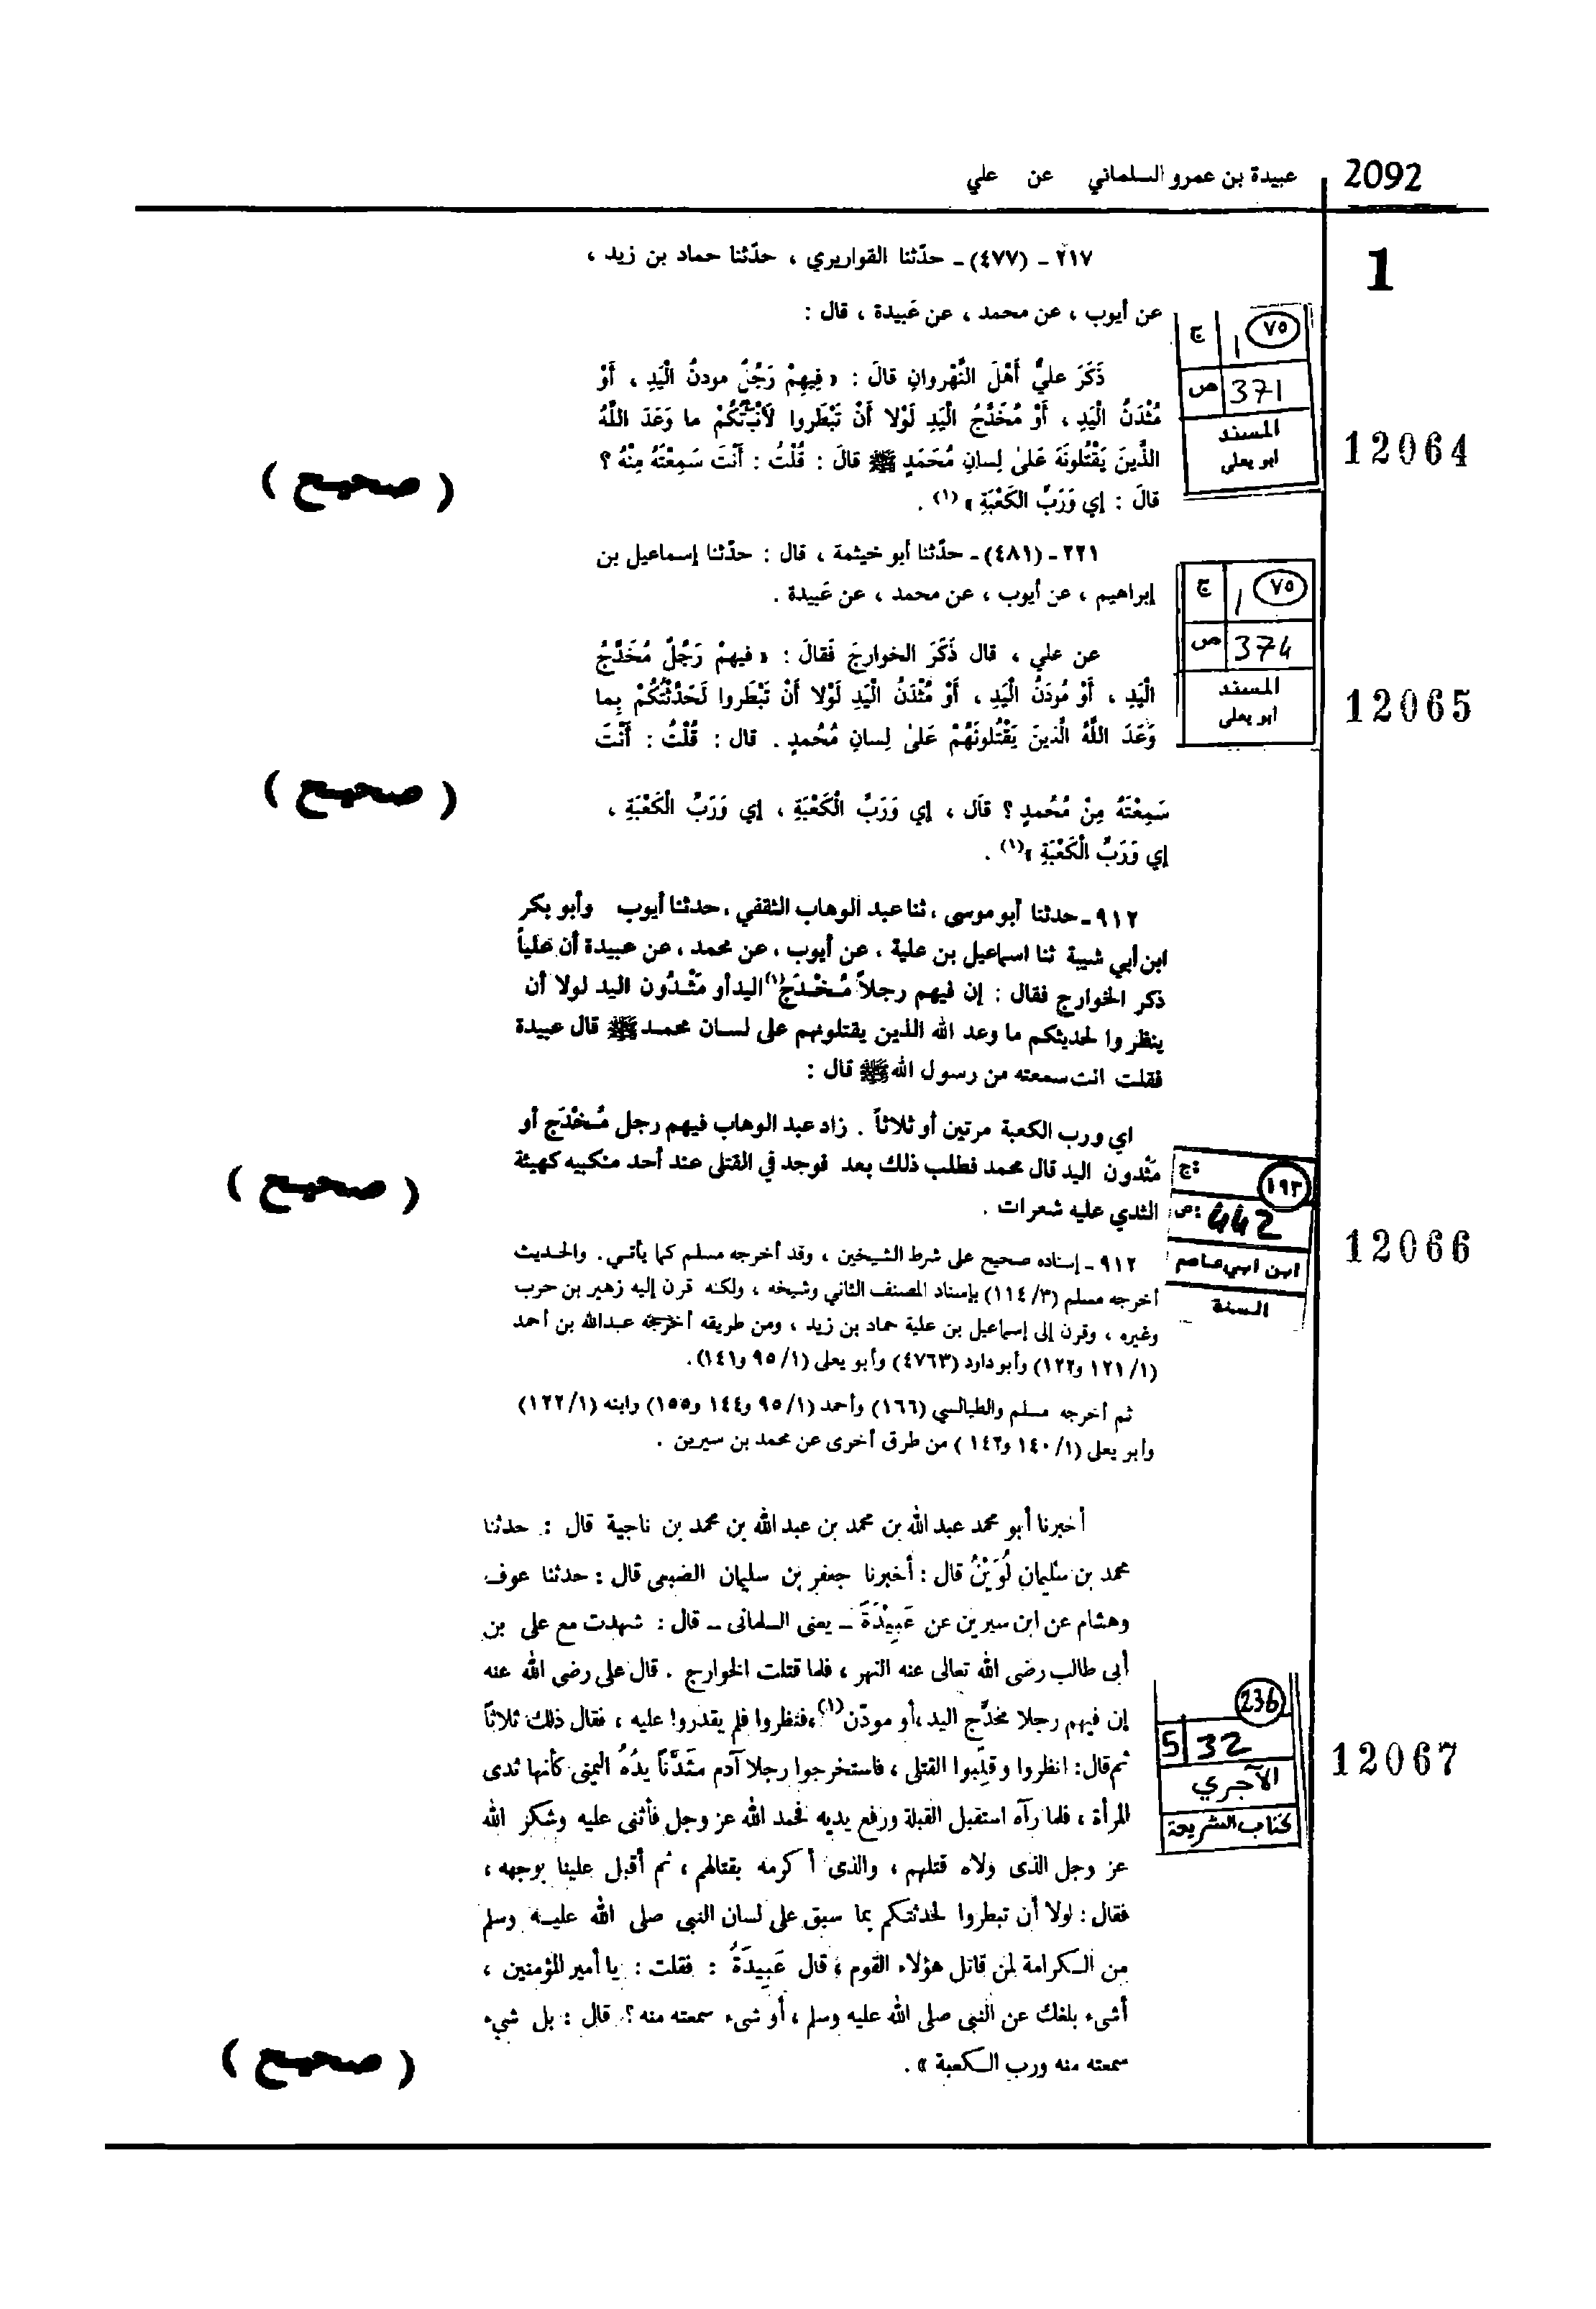 2092
عبيدة بن عمرو السلماني عن علي
1
٢١٧ - (٤٧٧) - حدّثنا القواريري ، حدّثنا حماد بن زيد ،
عن أيوب ، عن محمد ، عن عَبيدة ، قال :
ذَكَرَ عليٌّ أَهْلَ النَّهْروانِ قالَ : « فِيهِمْ رَجُلٌ مودنُ الْيَدِ ، أَوْ
مُثْدَنُ الْيَدِ ، أَوْ مُخَدَّجُ الْيَدِ لَوْلا أَنْ تَبْطَروا لَأَنْبَأْتُكُمْ ما وَعَدَ اللَّهُ
الَّذينَ يَقْتُلونَهُ عَلىٰ لِسانِ مُحَمَدٍ ﷺ قالَ : قُلْتُ : أَنْتَ سَمِعْتَهُ مِنْهُ ؟
قالَ : إي وَرَبِّ الكَعْبَةِ » (١) .
( صحيح )
٧٥
ج ١
ص 371
المسند
ابو يعلى
12064
٢٢١ - (٤٨١) - حدّثنا أبو خيثمة ، قال : حدّثنا إسماعيل بن
إبراهيم ، عن أيوب ، عن محمد ، عن عَبيدة .
عن علي ، قال ذَكَرَ الخوارجَ فَقالَ : « فيهمْ رَجُلٌ مُخَدَّجُ
الْيَدِ ، أَوْ مُودَنُ الْيَدِ ، أَوْ مُثْدَنُ الْيَدِ لَوْلا أَنْ تَبْطَروا لَحَدَّثْتُكُمْ بِما
وَعَدَ اللَّهُ الَّذينَ يَقْتُلونَهُمْ عَلىٰ لِسانِ مُحَمدٍ . قال : قُلْتُ : أَنْتَ
سَمِعْتَهُ مِنْ مُحَمدٍ ؟ قاَل ، إي وَرَبِّ الْكَعْبَةِ ، إي وَرَبِّ الْكَعْبَةِ ،
إي وَرَبِّ الْكَعْبَةِ »(١) .
( صحيح )
٧٥
ج ١
ص 374
المسند
ابو يعلى
12065
٩١٢ - حدثنا أبو موسى ، ثنا عبد الوهاب الثقفي ، حدثنا أيوب وأبو بكر
ابن أبي شيبة ثنا اسماعيل بن علية ، عن أيوب ، عن محمد ، عن عبيدة أن علياً
ذكر الخوارج فقال : إن فيهم رجلاً مُخْدَجُ(١) اليد أو مَثْدُون اليد لولا أن
ينظروا لحديثكم ما وعد الله الذين يقتلونهم على لسان محمد ﷺ قال عبيدة
فقلت انت سمعته من رسول الله ﷺ قال :
اي ورب الكعبة مرتين أو ثلاثاً . زاد عبد الوهاب فيهم رجل مُخْدَج أو
مَثْدون اليد قال محمد فطلب ذلك بعد فوجد في القتلى عند أحد منكبيه كهيئة
الثدي عليه شعرات .
( صحيح )
١٩٣
ج:
ص: 442
ابن ابي عاصم
السنة
12066
٩١٢ - إسناده صحيح على شرط الشيخين ، وقد أخرجه مسلم كما يأتي . والحديث
أخرجه مسلم (٣/ ١١٤) بإسناد المصنف الثاني وشيخه ، ولكنه قرن إليه زهير بن حرب
وغيره ، وقرن إلى إسماعيل بن علية حماد بن زيد ، ومن طريقه أخرجه عبدالله بن أحمد
(١/ ١٢١ و١٢٢) وأبو داود (٤٧٦٣) وأبو يعلى (١/ ٩٥ و١٤١).
ثم أخرجه مسلم والطيالسي (١٦٦) وأحمد (١/ ٩٥ و١٤٤ و١٥٥) وابنه (١/ ١٢٢)
وأبو يعلى (١/ ١٤٠ و١٤٢ ) من طرق أخرى عن محمد بن سيرين .
أخبرنا أبو محمد عبد الله بن محمد بن عبد الله بن محمد بن ناجية قال : حدثنا
محمد بن سليمان لُوَيْنٌ قال : أخبرنا جعفر بن سليمان الضبعى قال : حدثنا عوف
وهشام عن ابن سيرين عن عَبِيْدَةَ – يعنى السلمانى – قال : شهدت مع على بن
أبى طالب رضى الله تعالى عنه النهر ، فلما قتلت الخوارج . قال على رضى الله عنه
إن فيهم رجلا مخدَّج اليد ، أو مودَن(١) ، فنظروا فلم يقدروا عليه ، فقال ذلك ثلاثاً
ثم قال : انظروا وقلِّبوا القتلى ، فاستخرجوا رجلا آدم مثَدَّناً يدُهُ اليمنى كأنها ثدى
المرأة ، فلما رآه استقبل القبلة ورفع يديه فحمد الله عز وجل فأثنى عليه وشكر الله
عز وجل الذى ولاه قتلهم ، والذى أكرمه بقتالهم ، ثم أقبل علينا بوجهه ،
فقال : لولا أن تبطروا لحدثتكم بما سبق على لسان النبى صلى الله عليه وسلم
من الكرامة لمن قاتل هؤلاء القوم ، قال عَبِيدَةُ : فقلت : يا أمير المؤمنين ،
أشىء بلغك عن النبى صلى الله عليه وسلم ، أو شىء سمعته منه ؟ قال : بل شيء
سمعته منه ورب الكعبة » .
( صحيح )
236
5 32
الآجري
كتاب الشريعة
12067